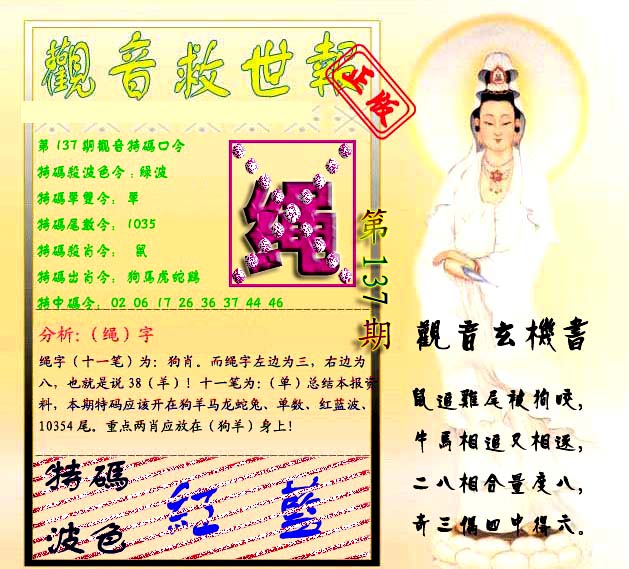 觀音救世報
正版
第137期觀音特碼口令
特碼殺波色令：綠波
特碼單雙令： 單
特碼尾數令： 1035
特碼殺肖令： 鼠
特碼出肖令： 狗馬虎蛇鷄
特中碼令： 02 06 17 26 36 37 44 46
绳
第137期
分析:（绳）字
绳字（十一笔）为：狗肖。而绳字左边为三，右边为
八，也就是说38（羊）！十一笔为：（单）总结本报资
料，本期特码应该开在狗羊马龙蛇兔、单数、红蓝波、
10354尾。重点两肖应放在（狗羊）身上！
特碼
波色
紅 藍
觀音玄機書
鼠追雞尾被狗咬，
牛馬相追又相逐，
二八相合量度八，
奇三偶四中得六。